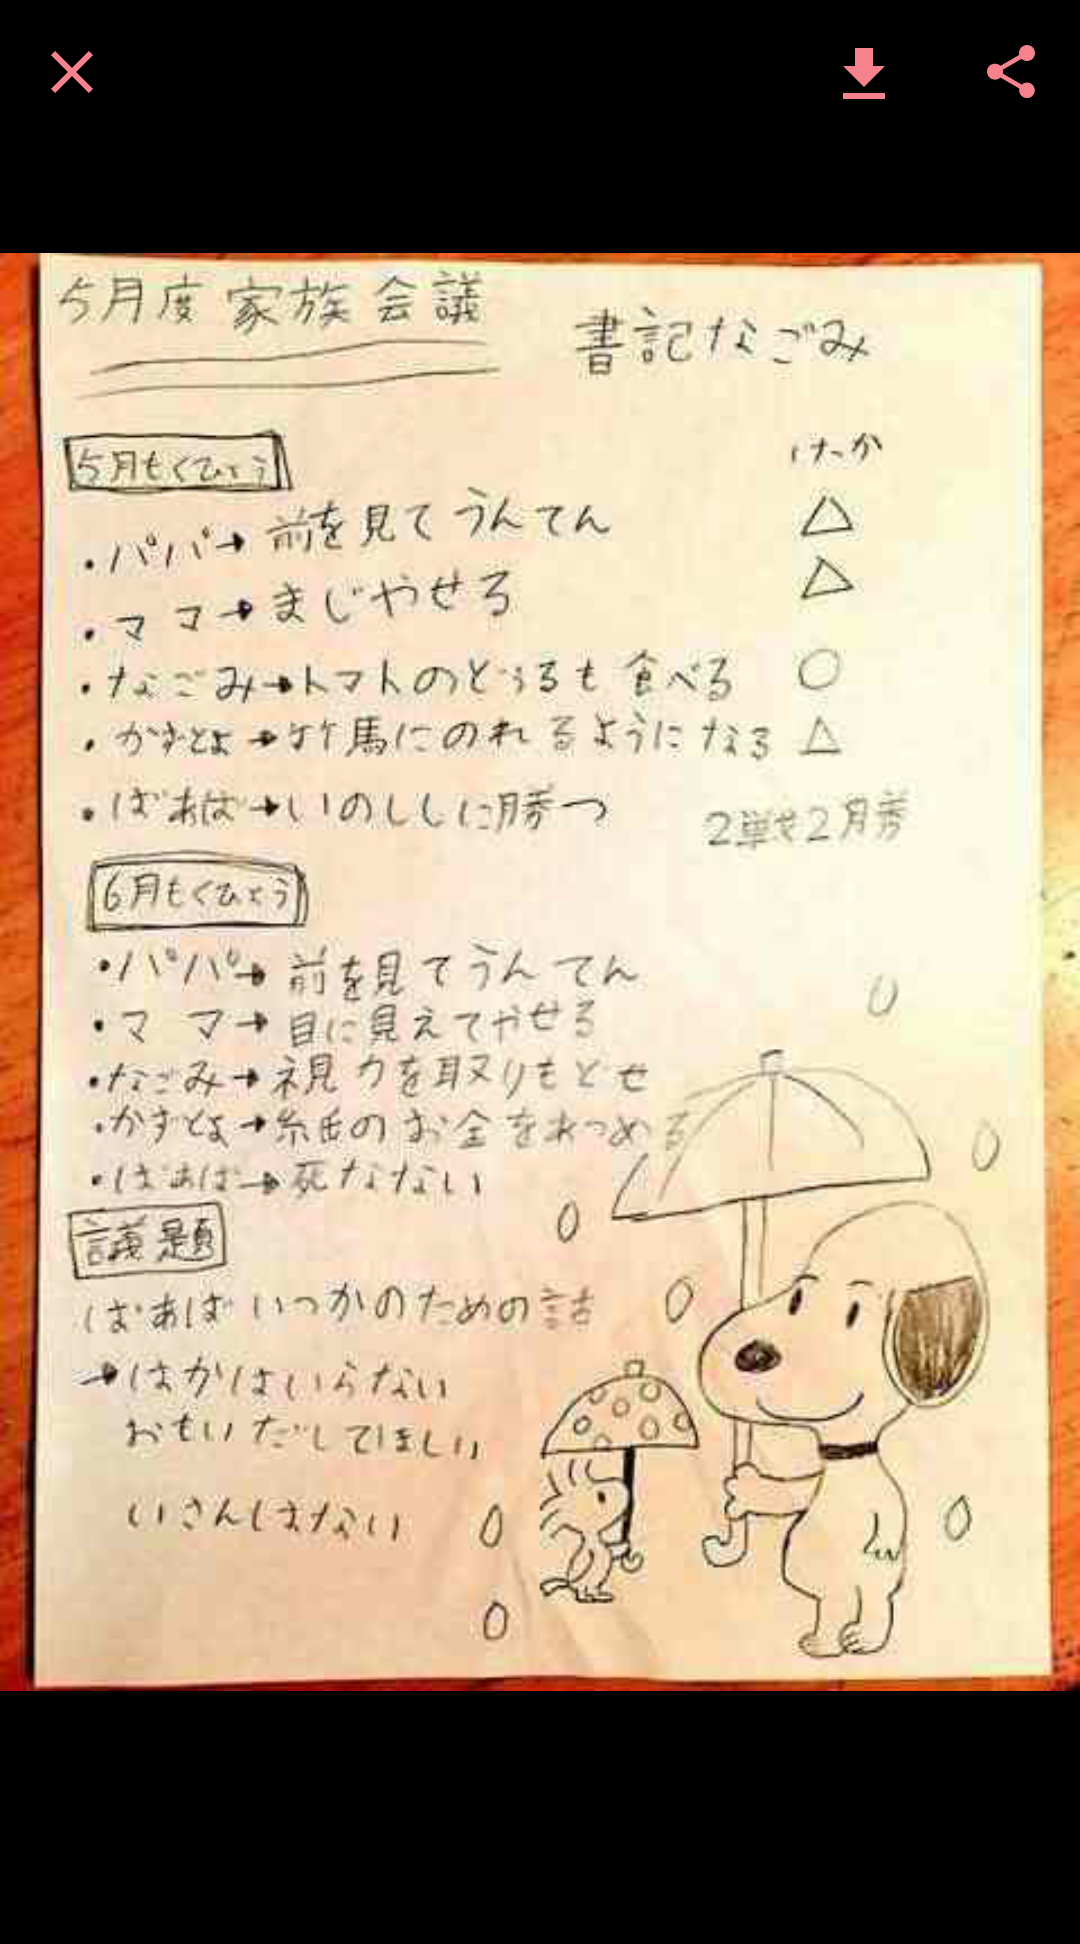 5月度 家族会議
書記なごみ
5月もくひょう
けっか
・パパ→前を見てうんてん △
・ママ→まじやせる △
・なごみ→トマトのどぅるも食べる ○
・かずとよ→竹馬にのれるようになる △
・ばあば→いのししに勝つ 2戦2勝
6月もくひょう
・パパ→前を見てうんてん
・ママ→目に見えてやせる
・なごみ→視力を取りもどせ
・かずとよ→紙のお金をあつめる
・ばあば→死なない
議題
ばあばいつかのための話
→はかはいらない
おもいだしてほしい
いさんはない